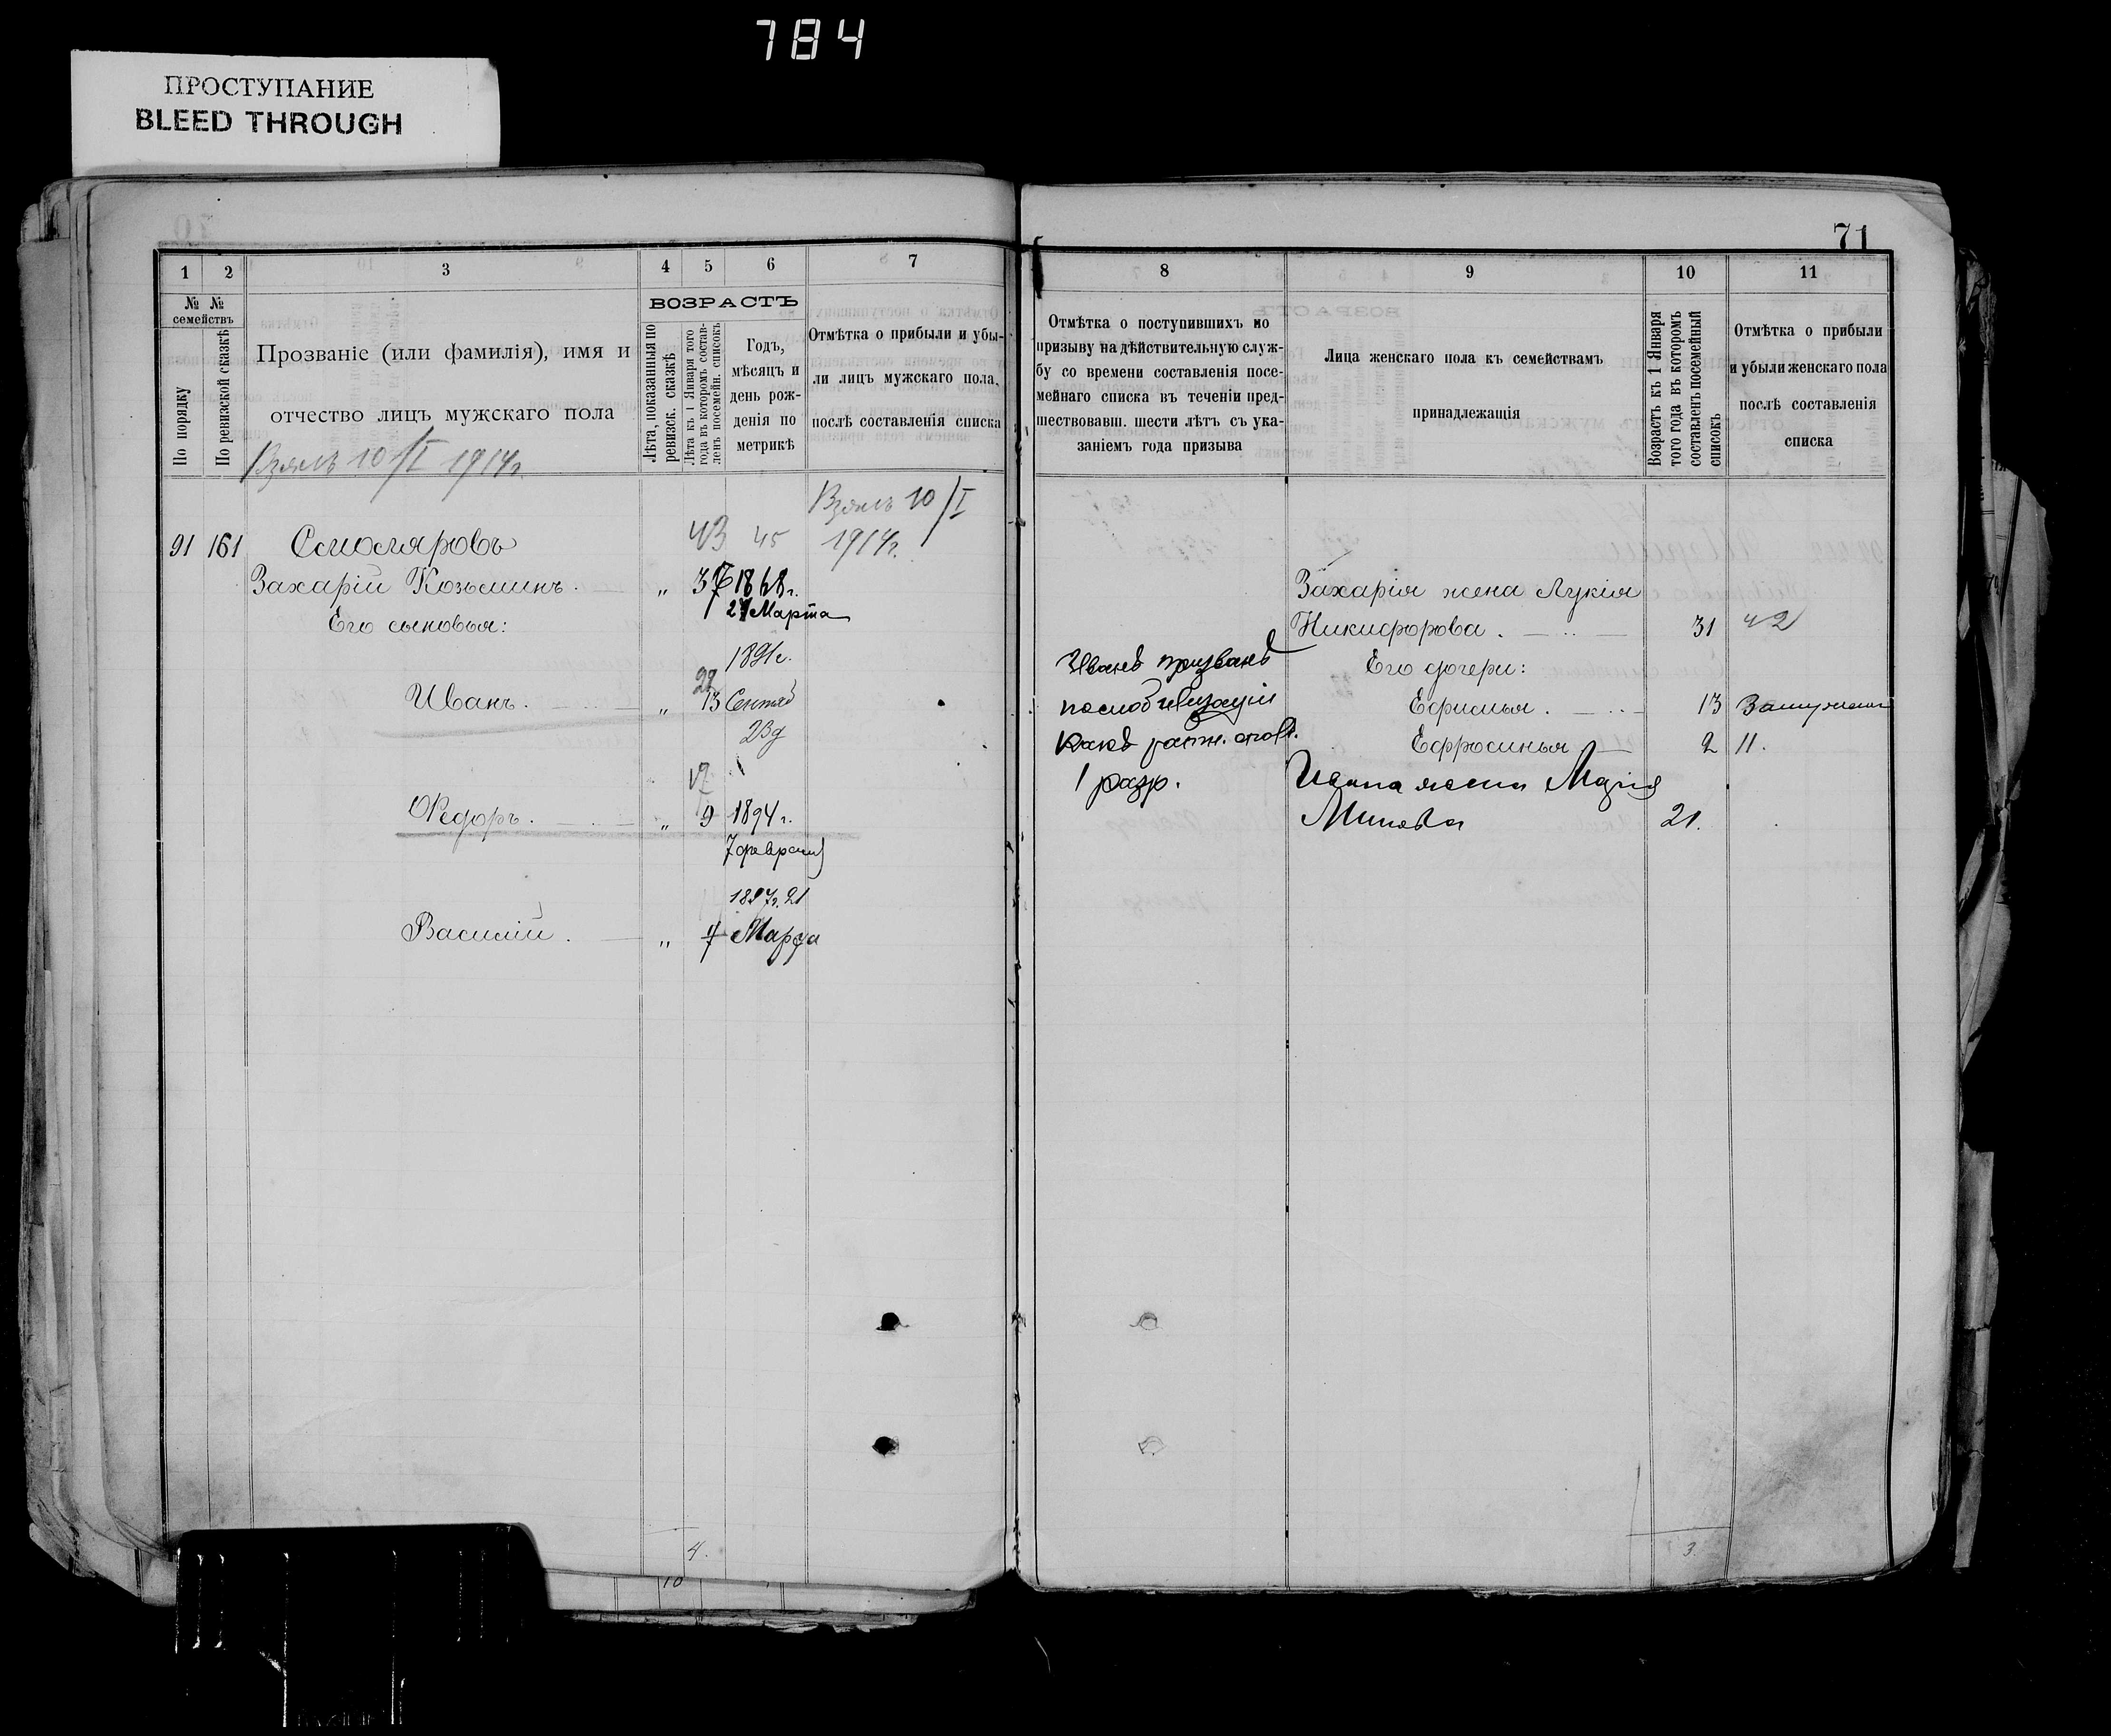 784
ПРОСТУПАНИЕ
BLEED THROUGH
71
1 2 3 4 5 6 7
№ № семействъ
По порядку
По ревизской сказкѣ
Прозваніе (или фамилія), имя и
отчество лицъ мужскаго пола
ВОЗРАСТЪ
Лѣта, показанныя по
ревизск. сказкѣ
Лѣта къ 1 Января того
года въ которомъ состав-
ленъ посемейн. списокъ
Годъ,
мѣсяцъ и
день рож-
денія по
метрикѣ
Отмѣтка о прибыли и убы-
ли лицъ мужскаго пола,
послѣ составленія списка
10/I 1914г.
10/I
1914г.
91 161
43 45
Захарій Козьминъ. „ 1868г.
Марта
Его сыновья:
1891г.
Иванъ. „ 13
23д
Федоръ. „ 9 1894г.
7 февраля
1897г. 21
Василій. „ Марта
4.
10
8 9 10 11
Отмѣтка о поступившихъ по
призыву на дѣйствительную служ-
бу со времени составленія посе-
мейнаго списка въ теченіи пред-
шествовавш. шести лѣтъ съ ука-
заніемъ года призыва
Лица женскаго пола къ семействамъ
принадлежащія
Возрастъ къ 1 Января
того года въ которомъ
составленъ посемейный
списокъ
Отмѣтка о прибыли
и убыли женскаго пола
послѣ составленія
списка
Захарія жена Лукія
Никифорова. 31 42
Иванъ призванъ
Его дочери:
по мобилизаціи
Ефимья. 13 Замужемъ
какъ ратн. опол.
Ефросинья 2 11.
1 разр.
Ивана жена Марія
21.
3.